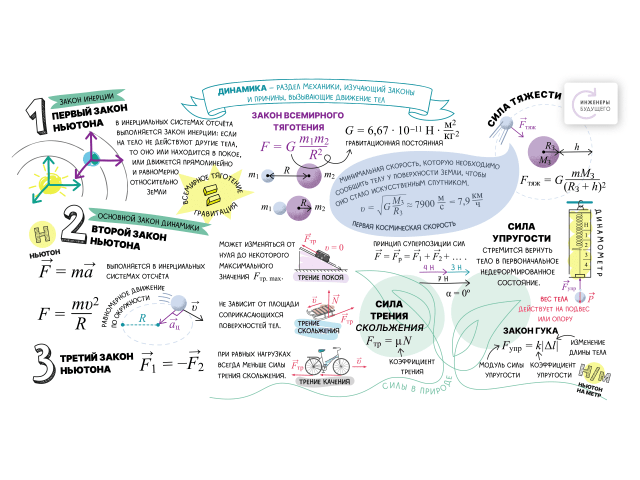 ДИНАМИКА – РАЗДЕЛ МЕХАНИКИ, ИЗУЧАЮЩИЙ ЗАКОНЫ
И ПРИЧИНЫ, ВЫЗЫВАЮЩИЕ ДВИЖЕНИЕ ТЕЛ
ИНЖЕНЕРЫ
БУДУЩЕГО
1
ЗАКОН ИНЕРЦИИ
ПЕРВЫЙ ЗАКОН
НЬЮТОНА
В ИНЕРЦИАЛЬНЫХ СИСТЕМАХ ОТСЧЁТА
ВЫПОЛНЯЕТСЯ ЗАКОН ИНЕРЦИИ: ЕСЛИ
НА ТЕЛО НЕ ДЕЙСТВУЮТ ДРУГИЕ ТЕЛА,
ТО ОНО ИЛИ НАХОДИТСЯ В ПОКОЕ,
ИЛИ ДВИЖЕТСЯ ПРЯМОЛИНЕЙНО
И РАВНОМЕРНО
ОТНОСИТЕЛЬНО
ЗЕМЛИ
ВСЕМИРНОЕ ТЯГОТЕНИЕ
=
ГРАВИТАЦИЯ
ЗАКОН ВСЕМИРНОГО
ТЯГОТЕНИЯ
F = G m₁m₂/R²
G = 6,67 · 10⁻¹¹ Н · м²/кг²
ГРАВИТАЦИОННАЯ ПОСТОЯННАЯ
m₁ R m₂
m₁ R m₂
МИНИМАЛЬНАЯ СКОРОСТЬ, КОТОРУЮ НЕОБХОДИМО
СООБЩИТЬ ТЕЛУ У ПОВЕРХНОСТИ ЗЕМЛИ, ЧТОБЫ
ОНО СТАЛО ИСКУССТВЕННЫМ СПУТНИКОМ.
υ = √(G M₃/R₃) ≈ 7900 м/с = 7,9 км/ч
ПЕРВАЯ КОСМИЧЕСКАЯ СКОРОСТЬ
СИЛА ТЯЖЕСТИ
F⃗тяж
R₃ h
M₃
Fтяж = G mM₃/(R₃ + h)²
2
ОСНОВНОЙ ЗАКОН ДИНАМИКИ
ВТОРОЙ ЗАКОН
НЬЮТОНА
Н
НЬЮТОН
F⃗ = ma⃗
ВЫПОЛНЯЕТСЯ В ИНЕРЦИАЛЬНЫХ
СИСТЕМАХ ОТСЧЁТА
F = mυ²/R
РАВНОМЕРНОЕ ДВИЖЕНИЕ
ПО ОКРУЖНОСТИ
R a⃗ц υ⃗
3
ТРЕТИЙ ЗАКОН
НЬЮТОНА
F⃗₁ = −F⃗₂
МОЖЕТ ИЗМЕНЯТЬСЯ ОТ
НУЛЯ ДО НЕКОТОРОГО
МАКСИМАЛЬНОГО
ЗНАЧЕНИЯ Fтр. max.
F⃗тр υ = 0
ТРЕНИЕ ПОКОЯ
НЕ ЗАВИСИТ ОТ ПЛОЩАДИ
СОПРИКАСАЮЩИХСЯ
ПОВЕРХНОСТЕЙ ТЕЛ.
υ⃗ N⃗ F⃗тр
ТРЕНИЕ
СКОЛЬЖЕНИЯ
ПРИ РАВНЫХ НАГРУЗКАХ
ВСЕГДА МЕНЬШЕ СИЛЫ
ТРЕНИЯ СКОЛЬЖЕНИЯ.
F⃗тр υ⃗
ТРЕНИЕ КАЧЕНИЯ
ПРИНЦИП СУПЕРПОЗИЦИИ СИЛ
F⃗ = F⃗р = F⃗₁ + F⃗₂ + ....
4 Н 3 Н
7 Н
α = 0°
СИЛА
ТРЕНИЯ
СКОЛЬЖЕНИЯ
Fтр = μN
КОЭФФИЦИЕНТ
ТРЕНИЯ
СИЛЫ В ПРИРОДЕ
СИЛА
УПРУГОСТИ
СТРЕМИТСЯ ВЕРНУТЬ
ТЕЛО В ПЕРВОНАЧАЛЬНОЕ
НЕДЕФОРМИРОВАННОЕ
СОСТОЯНИЕ.
ДИНАМОМЕТР
F⃗упр
P⃗
ВЕС ТЕЛА
ДЕЙСТВУЕТ НА ПОДВЕС
ИЛИ ОПОРУ
ЗАКОН ГУКА
Fупр = k|Δl|
ИЗМЕНЕНИЕ
ДЛИНЫ ТЕЛА
МОДУЛЬ СИЛЫ
УПРУГОСТИ
КОЭФФИЦИЕНТ
УПРУГОСТИ
Н/М
НЬЮТОН
НА МЕТР